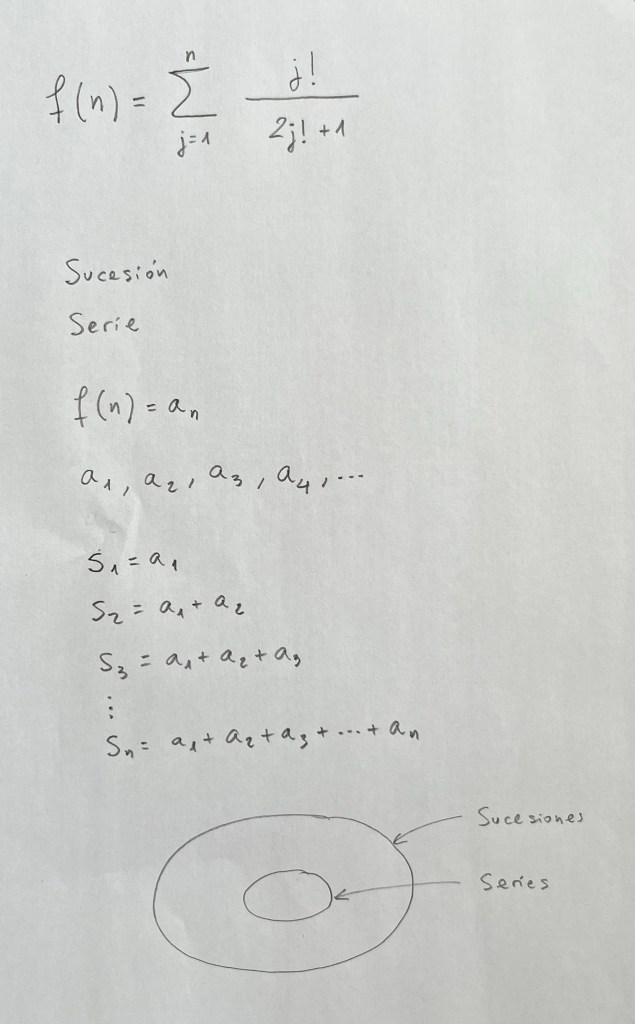 f(n) = \sum_{j=1}^{n} \frac{j!}{2j!+1}
Sucesión
Serie
f(n) = a_n
a_1, a_2, a_3, a_4, ...
S_1 = a_1
S_2 = a_1 + a_2
S_3 = a_1 + a_2 + a_3
⋮
S_n = a_1 + a_2 + a_3 + ... + a_n
Sucesiones
Series